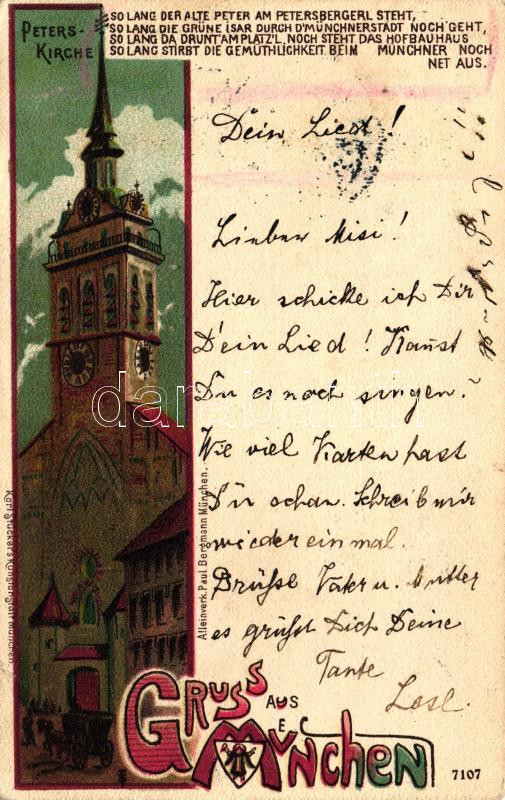 PETERS-
KIRCHE
SO LANG DER ALTE PETER AM PETERSBERGERL STEHT,
SO LANG DIE GRÜNE ISAR DURCH D'MÜNCHNERSTADT NOCH GEHT,
SO LANG DA DRUNT AM PLATZ'L NOCH STEHT DAS HOFBAUHAUS
SO LANG STIRBT DIE GEMÜTHLICHKEIT BEIM MÜNCHNER NOCH
NET AUS.
Dein Lied!
Lieber Misi!
Hier schicke ich Dir
Dein Lied! Kanst
Du es noch singen?
Wie viel Karten hast
Du schon. Schreib mir
wieder einmal.
Grüße Vater u. Mutter
es grüßt Dich Deine
Tante
darabanth
Alleinverk. Paul Bergmann München.
Karl Stücker's Kunstanstalt München
GRUSS AUS
MÜNCHEN
7107